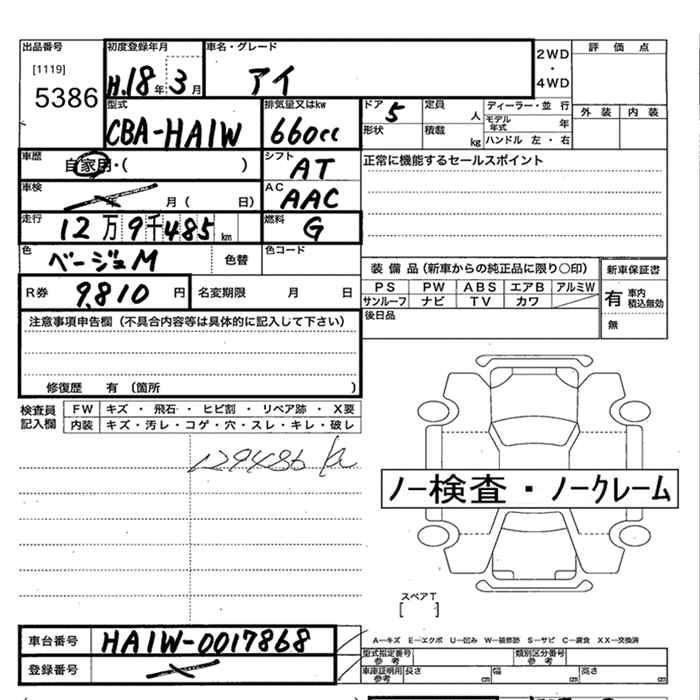 出品番号 初度登録年月 車名・グレード 2WD・4WD 評価点
[1119] 5386 H.18年 3月 アイ
型式 排気量又はkw ドア 5 定員 人 ディーラー・並 行 外装 内装
CBA-HA1W 660cc 形状 積載 kg モデル年式 年 ハンドル 左・右
車歴 自家用・( ) シフト AT 正常に機能するセールスポイント
車検 年 月( 日) AC AAC
走行 12万9千485km 燃料 G
色 ベージュM 色替 色コード
装備品(新車からの純正品に限り○印) 新車保証書
R券 9,810円 名変期限 月 日 PS PW ABS エアB アルミW 有 車内積込無効
サンルーフ ナビ TV カワ
注意事項申告欄(不具合内容等は具体的に記入して下さい) 後日品 無
修復歴 有(箇所 )
検査員記入欄 FW キズ・飛石・ヒビ割・リペア跡・X要
内装 キズ・汚レ・コゲ・穴・スレ・キレ・破レ
129486
ノー検査・ノークレーム
スペアT
[ ]
車台番号 HA1W-0017868 A-キズ E-エクボ U-凹み W-補修跡 S-サビ C-腐食 XX-交換済
型式指定番号参考 類別区分番号参考
登録番号 車庫証明用参考 長さ cm 幅 cm 高さ cm